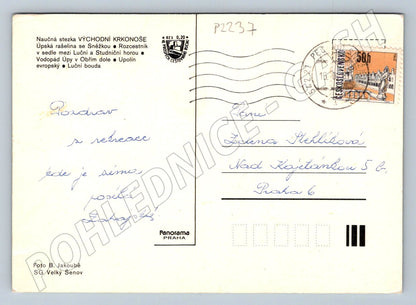 P2237
Naučná stezka VÝCHODNÍ KRKONOŠE
Úpská rašelina se Sněžkou • Rozcestník
v sedle mezi Luční a Studniční horou •
Vodopád Úpy v Obřím dole • Upolín
evropský • Luční bouda
Kčs 0,20
ČESKOSLOVENSKO
50h
Pozdrav
z rekreace
kde je sima
Jana Stehlíková
Nad Kajetánkou 5
Praha 6
Panorama
PRAHA
Foto B. Jakoubě
SG Velký Šenov
POHLEDNICE